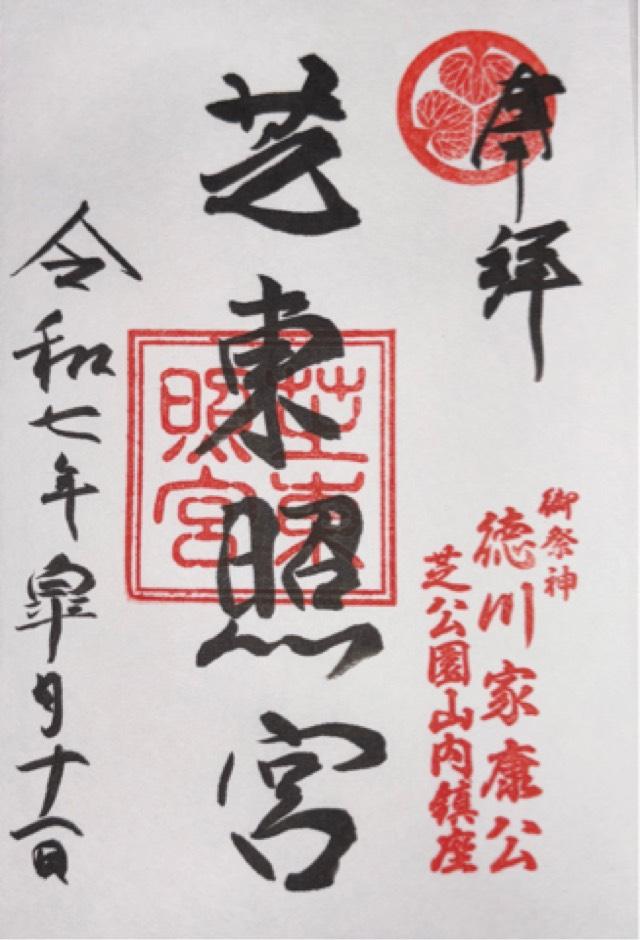 奉拝
御祭神
徳川家康公
芝公園山内鎮座
芝東照宮
芝東照宮
令和七年皐月十八日